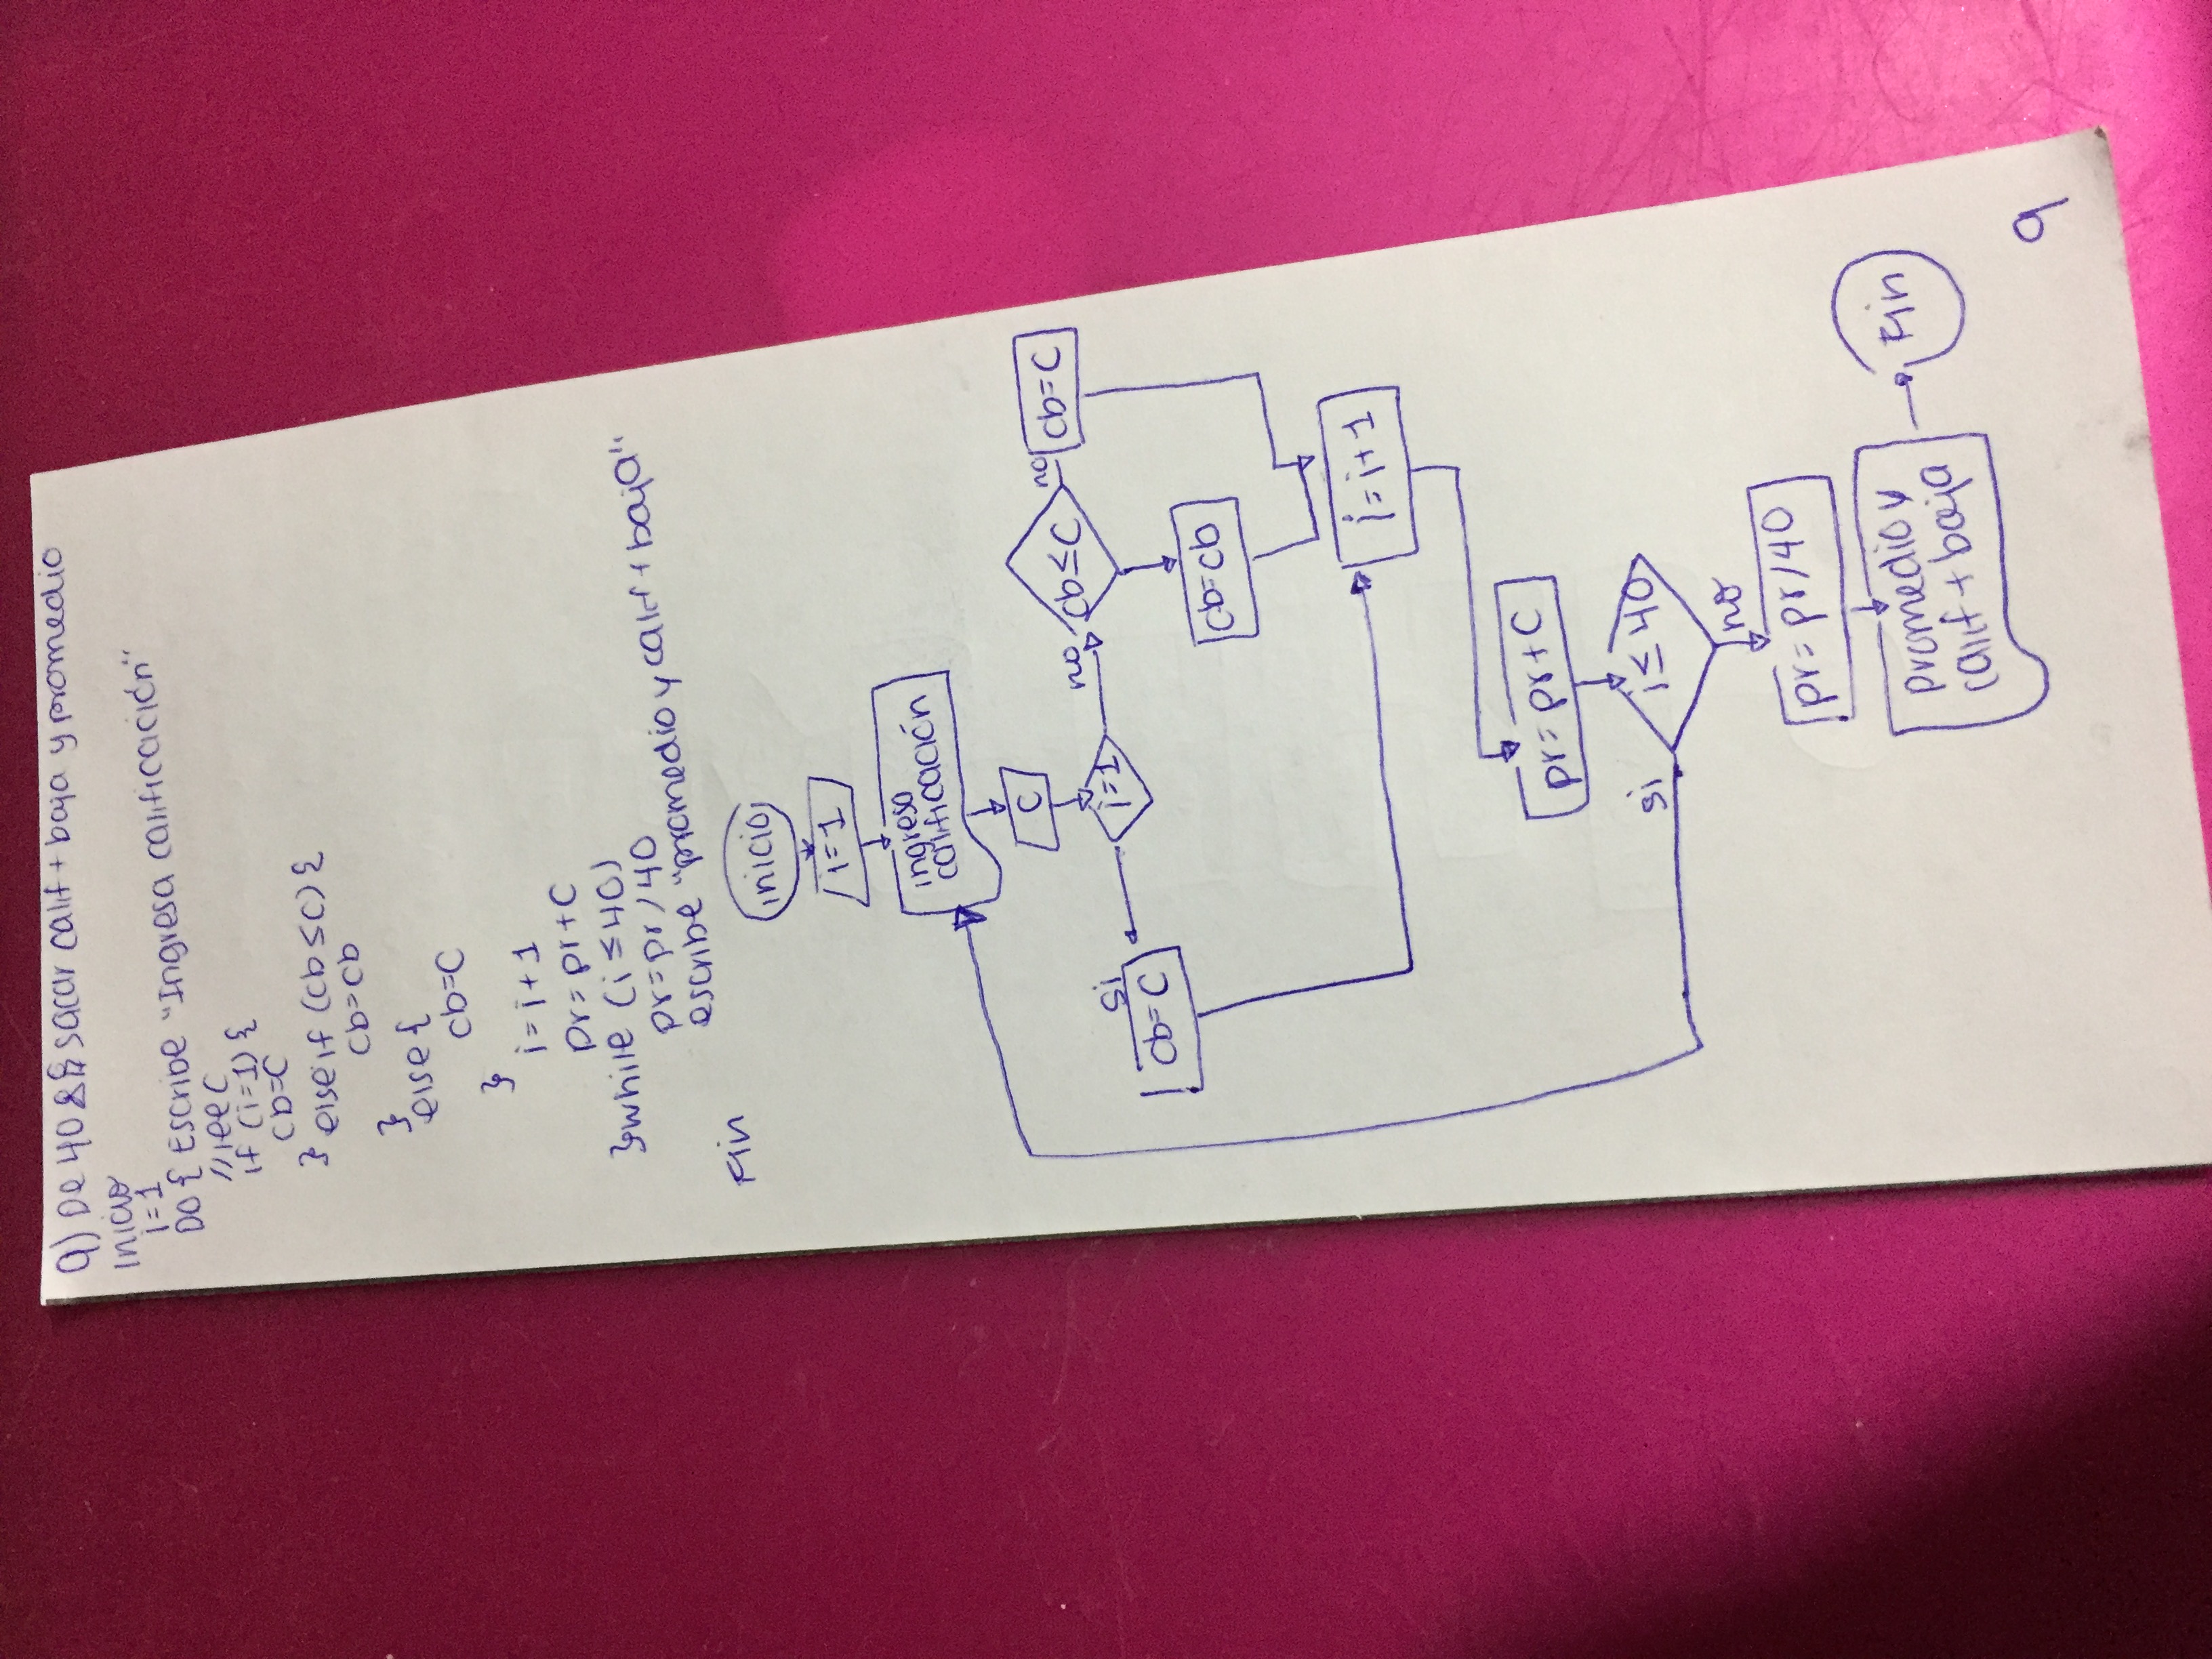 9) De 40 sacar calif + baja y promedio
Inicio
i=1
DO { Escribe "Ingresa calificación"
//lee C
if (i=1) {
cb=C
} else if (cb≤C) {
cb=cb
}
else {
cb=C
}
i=i+1
pr=pr+C
} while (i≤40)
pr=pr/40
escribe "promedio y calif + baja"
Fin
inicio
i=1
ingresa
calificación
C
i=1
si
cb=C
no
cb≤C
no
cb=C
cb=cb
i=i+1
pr=pr+C
i≤40
si
no
pr=pr/40
Promedio y
calif + baja
Fin
9